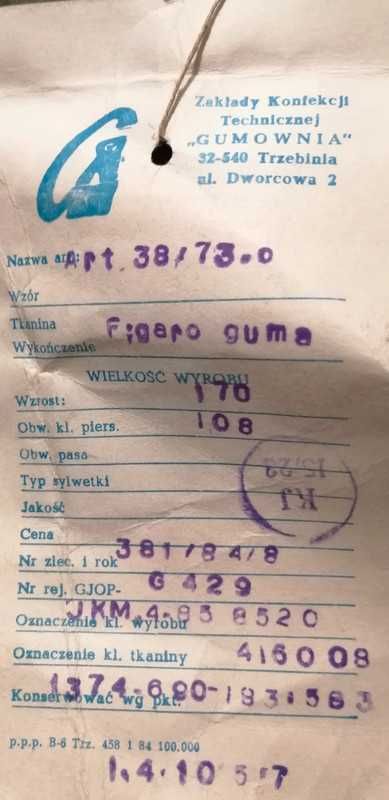 Zakłady Konfekcji
Technicznej
„GUMOWNIA"
32-540 Trzebinia
ul. Dworcowa 2
Nazwa art: Art. 38/73.0
Wzór
Tkanina Figaro guma
Wykończenie
WIELKOŚĆ WYROBU
Wzrost: 170
Obw. kl. piers. 108
Obw. pasa
Typ sylwetki
KJ
15,23
Jakość
Cena
Nr zlec. i rok 381/84/8
Nr rej. GJOP- G 429
Oznaczenie kl. wyrobu JKM.4-85 8520
Oznaczenie kl. tkaniny 416008
Konserwować wg pkt. 1374-690-183.563
p.p.p. B-6 Trz. 458 1 84 100.000
1.4.1057